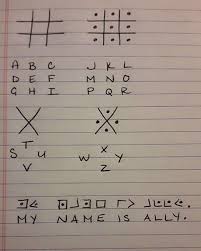 A B C J K L
D E F M N O
G H I P Q R
T
S U
V
X
W Y
Z
MY NAME IS ALLY.